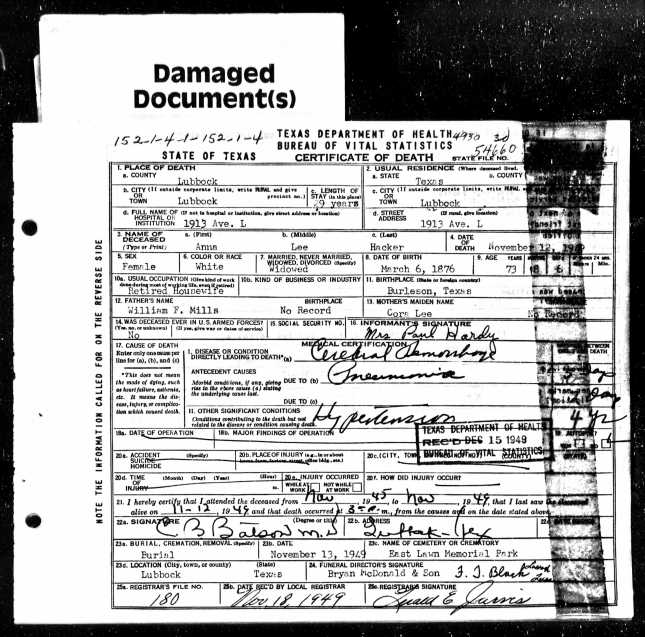 Damaged
Document(s)
152-1-4-1-152-1-4
TEXAS DEPARTMENT OF HEALTH 4930
BUREAU OF VITAL STATISTICS 54660
STATE OF TEXAS CERTIFICATE OF DEATH STATE FILE NO.
1. PLACE OF DEATH 2. USUAL RESIDENCE (Where deceased lived.
a. COUNTY Lubbock a. STATE Texas b. COUNTY
b. CITY (If outside corporate limits, write RURAL and give precinct no.) OR TOWN Lubbock c. LENGTH OF STAY (in this place) 29 years c. CITY (If outside corporate limits, write RURAL OR TOWN Lubbock
d. FULL NAME OF (If not in hospital or institution, give street address or location) HOSPITAL OR INSTITUTION 1913 Ave. L d. STREET ADDRESS (If rural, give location) 1913 Ave. L
3. NAME OF DECEASED (Type or Print) a. (First) Anna b. (Middle) Lee c. (Last) Hacker 4. DATE OF DEATH November 12, 1949
5. SEX Female 6. COLOR OR RACE White 7. MARRIED, NEVER MARRIED, WIDOWED, DIVORCED (Specify) Widowed 8. DATE OF BIRTH March 6, 1876 9. AGE YEARS 73
10a. USUAL OCCUPATION (Give kind of work done during most of working life, even if retired) Retired Housewife 10b. KIND OF BUSINESS OR INDUSTRY 11. BIRTHPLACE (State or foreign country) Burleson, Texas
12. FATHER'S NAME William F. Mills BIRTHPLACE No Record 13. MOTHER'S MAIDEN NAME Cora Lee No Record
14. WAS DECEASED EVER IN U.S. ARMED FORCES? (Yes, no, or unknown) (If yes, give war or dates of service) No 15. SOCIAL SECURITY NO. 16. INFORMANT'S SIGNATURE Mrs Paul Hardy
MEDICAL CERTIFICATION
17. CAUSE OF DEATH
Enter only one cause per line for (a), (b), and (c)
I. DISEASE OR CONDITION DIRECTLY LEADING TO DEATH* (a) Cerebral Hemorrhage
*This does not mean the mode of dying, such as heart failure, asthenia, etc. It means the disease, injury, or complication which caused death.
ANTECEDENT CAUSES
Morbid conditions, if any, giving rise to the above cause (a) stating the underlying cause last.
DUE TO (b) Pneumonia
DUE TO (c)
II. OTHER SIGNIFICANT CONDITIONS
Conditions contributing to the death but not related to the disease or condition causing death.
Hypertension 4 yr
19a. DATE OF OPERATION 19b. MAJOR FINDINGS OF OPERATION
TEXAS DEPARTMENT OF HEALTH
REC'D DEC 15 1949
BUREAU OF VITAL STATISTICS
20a. ACCIDENT SUICIDE HOMICIDE (Specify) 20b. PLACE OF INJURY (e.g., in or about home, farm, factory, street, office bldg., etc.) 20c. (CITY, TOWN, (COUNTY)
20d. TIME OF INJURY (Month) (Day) (Year) (Hour) m. 20e. INJURY OCCURRED WHILE AT WORK NOT WHILE AT WORK 20f. HOW DID INJURY OCCUR?
21. I hereby certify that I attended the deceased from Nov 1945, to Nov 1949, that I last saw the deceased
alive on 11-12 1949 and that death occurred at m., from the causes and on the date stated above.
22a. SIGNATURE C B Batson M.D (Degree or title) 22b. ADDRESS Lubbock Tex
23a. BURIAL, CREMATION, REMOVAL (Specify) Burial 23b. DATE November 13, 1949 23c. NAME OF CEMETERY OR CREMATORY East Lawn Memorial Park
23d. LOCATION (City, town, or county) (State) Lubbock Texas 24. FUNERAL DIRECTOR'S SIGNATURE Bryan McDonald & Son F. J. Black
25a. REGISTRAR'S FILE NO. 180 25b. DATE REC'D BY LOCAL REGISTRAR Nov. 18, 1949 25c. REGISTRAR'S SIGNATURE Jarvis
NOTE THE INFORMATION CALLED FOR ON THE REVERSE SIDE